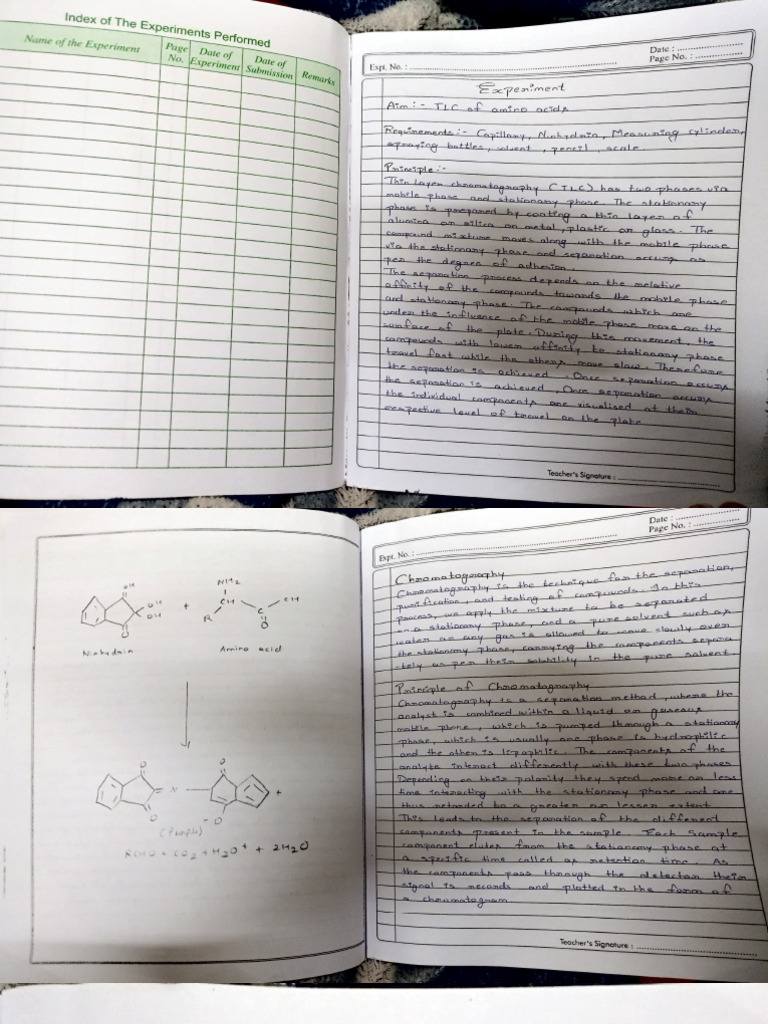 Index of The Experiments Performed
Name of the Experiment
Page No.
Date of Experiment
Date of Submission
Remarks
Date :
Expt. No. :
Page No. :
Experiment
Aim :- TLC of amino acids
Requirements :- Capillary, Ninhydrin, Measuring cylinder,
spraying bottles, solvent, pencil, scale.
Principle :-
Thin layer chromatography (TLC) has two phases via
mobile phase and stationary phase. The stationary
phase is prepared by coating a thin layer of
alumina or silica on metal, plastic or glass. The
compound mixture moves along with the mobile phase
via the stationary phase and separation occurs as
per the degree of adhesion.
The separation process depends on the relative
affinity of the compounds towards the mobile phase
and stationary phase. The compounds which are
under the influence of the mobile phase move on the
surface of the plate. During this movement, the
compounds with lower affinity to stationary phase
travel fast while the others move slow. Therefore
the separation is achieved. Once separation occurs
the separation is achieved, Once separation occurs
the individual components are visualised at their
respective level of travel on the plate
Teacher's Signature :
Date :
Expt. No. :
Page No. :
OH
OH
O
Ninhydrin
+
NH2
CH
R
C
OH
O
Amino acid
O
O
N
O
O
+
(Purple)
RCHO + CO2 + H2O + + 2H2O
Chromatography
Chromatography is the technique for the separation,
purification, and testing of compounds. In this
process, we apply the mixture to be separated
on a stationary phase, and a pure solvent such as
water or any gas is allowed to move slowly over
the stationary phase, carrying the components separa
tely as per their solubility in the pure solvent.
Principle of Chromatography
Chromatography is a separation method, where the
analyst is combined within a liquid or gaseous
mobile phone, which is pumped through a stationary
phase, which is usually one phase is hydrophilic
and the other is lipophilic. The components of the
analyte interact differently with these two phases.
Depending on their polarity they spend more or less
time interacting with the stationary phase and are
thus retarded to a greater or lesser extent
This leads to the separation of the different
components present in the sample. Each sample
component elutes from the stationary phase at
a specific time called as retention time. As
the components pass through the detector their
signal is records and plotted in the form of
a chromatogram
Teacher's Signature :